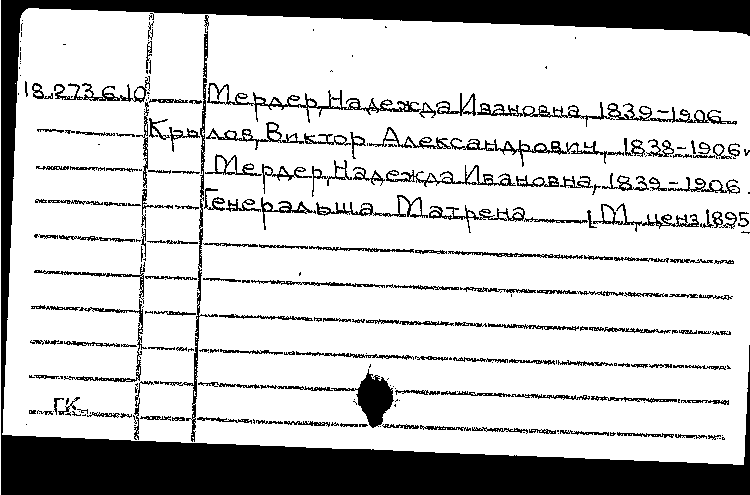 18.273.6.10 Мердер, Надежда Ивановна, 1839-1906
Крылов, Виктор Александрович, 1838-1906 и
Мердер, Надежда Ивановна, 1839-1906.
Генеральша Матрена [М, ценз 1895
ГК